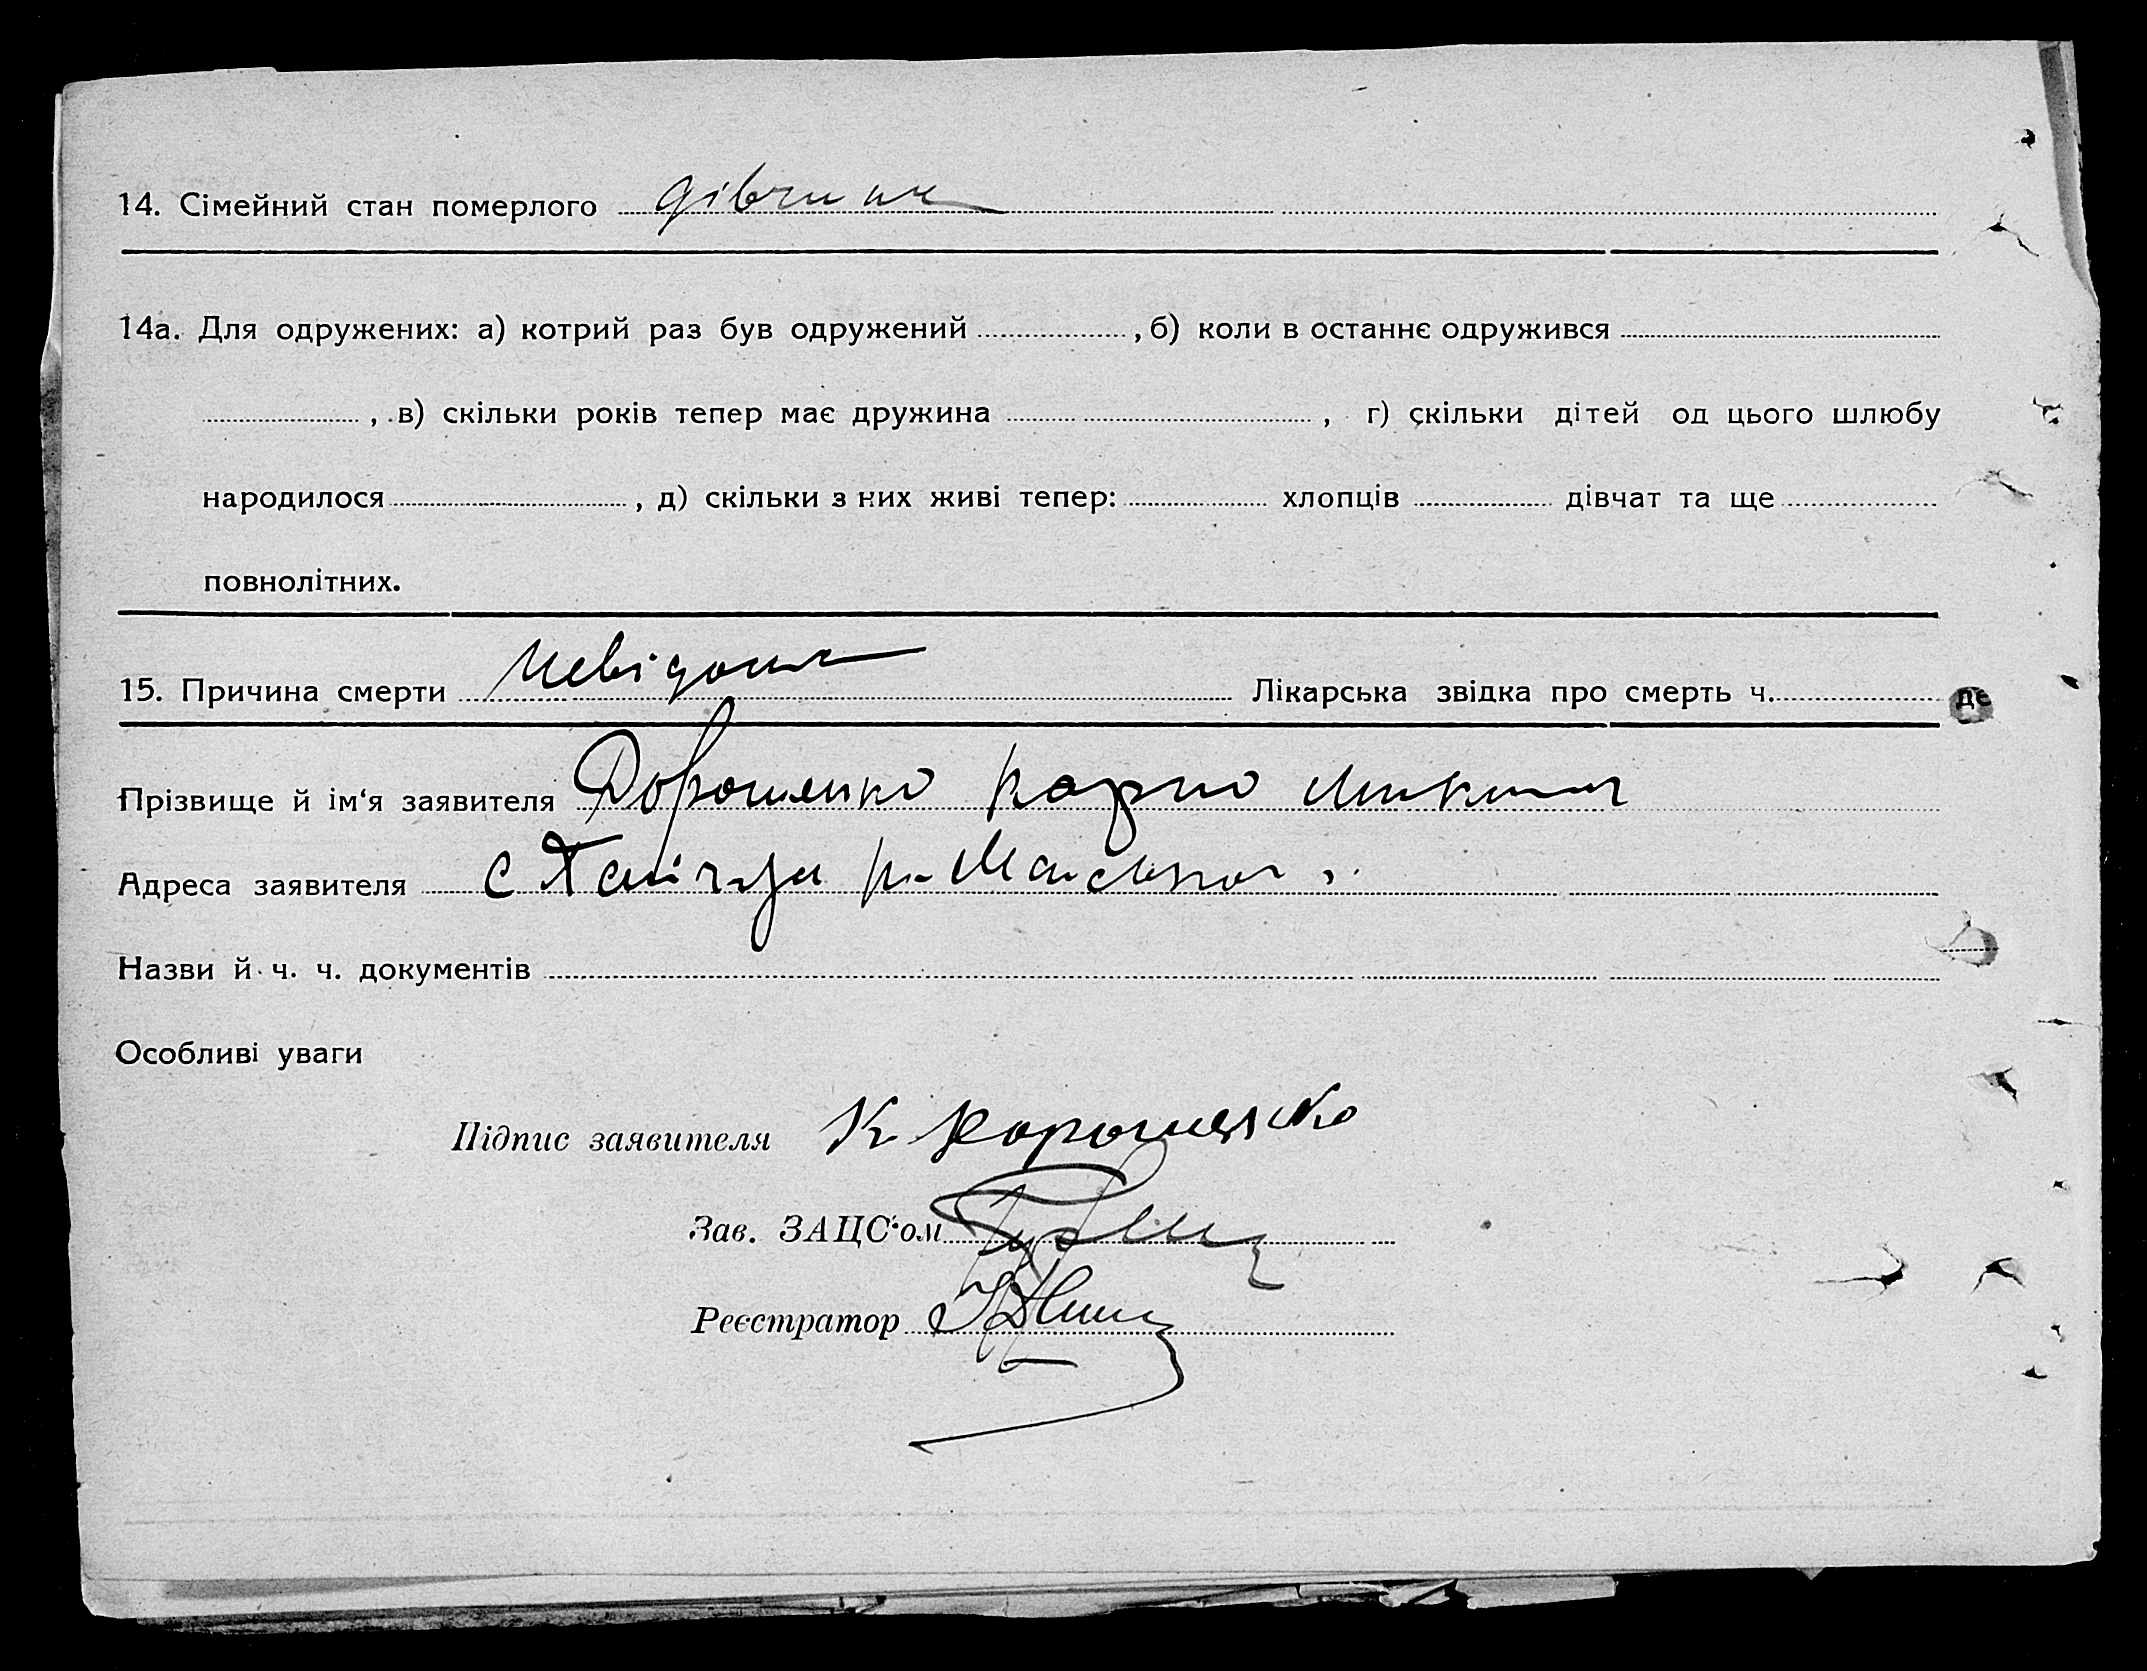 14. Сімейний стан померлого дівчина
14а. Для одружених: а) котрий раз був одружений , б) коли в останнє одружився
, в) скільки років тепер має дружина , г) скільки дітей од цього шлюбу
народилося , д) скільки з них живі тепер: хлопців дівчат та ще
повнолітних.
15. Причина смерти невідома Лікарська звідка про смерть ч.
де
Прізвище й ім‘я заявителя Дорошенко Карпо
Адреса заявителя с
Назви й ч. ч. документів
Особливі уваги
Підпис заявителя К Дорошенко
Зав. ЗАЦС‘ом
Реєстратор